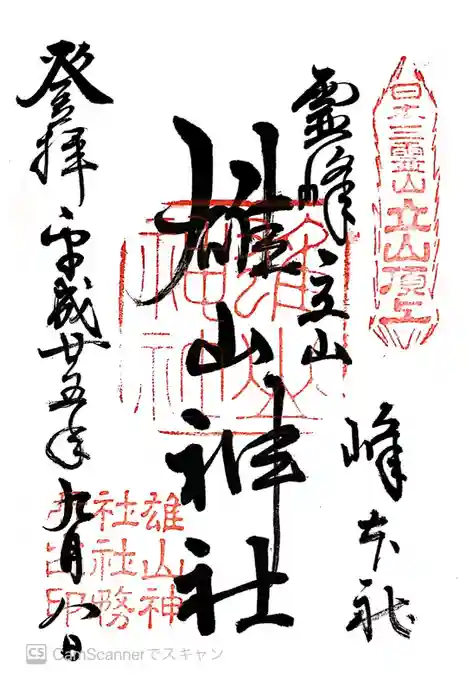 日本三霊山立山頂上
霊峰立山
峰本社
雄山神社
雄山神
社社務
印
登拝
平成廿五年九月八日
CS CamScannerでスキャン